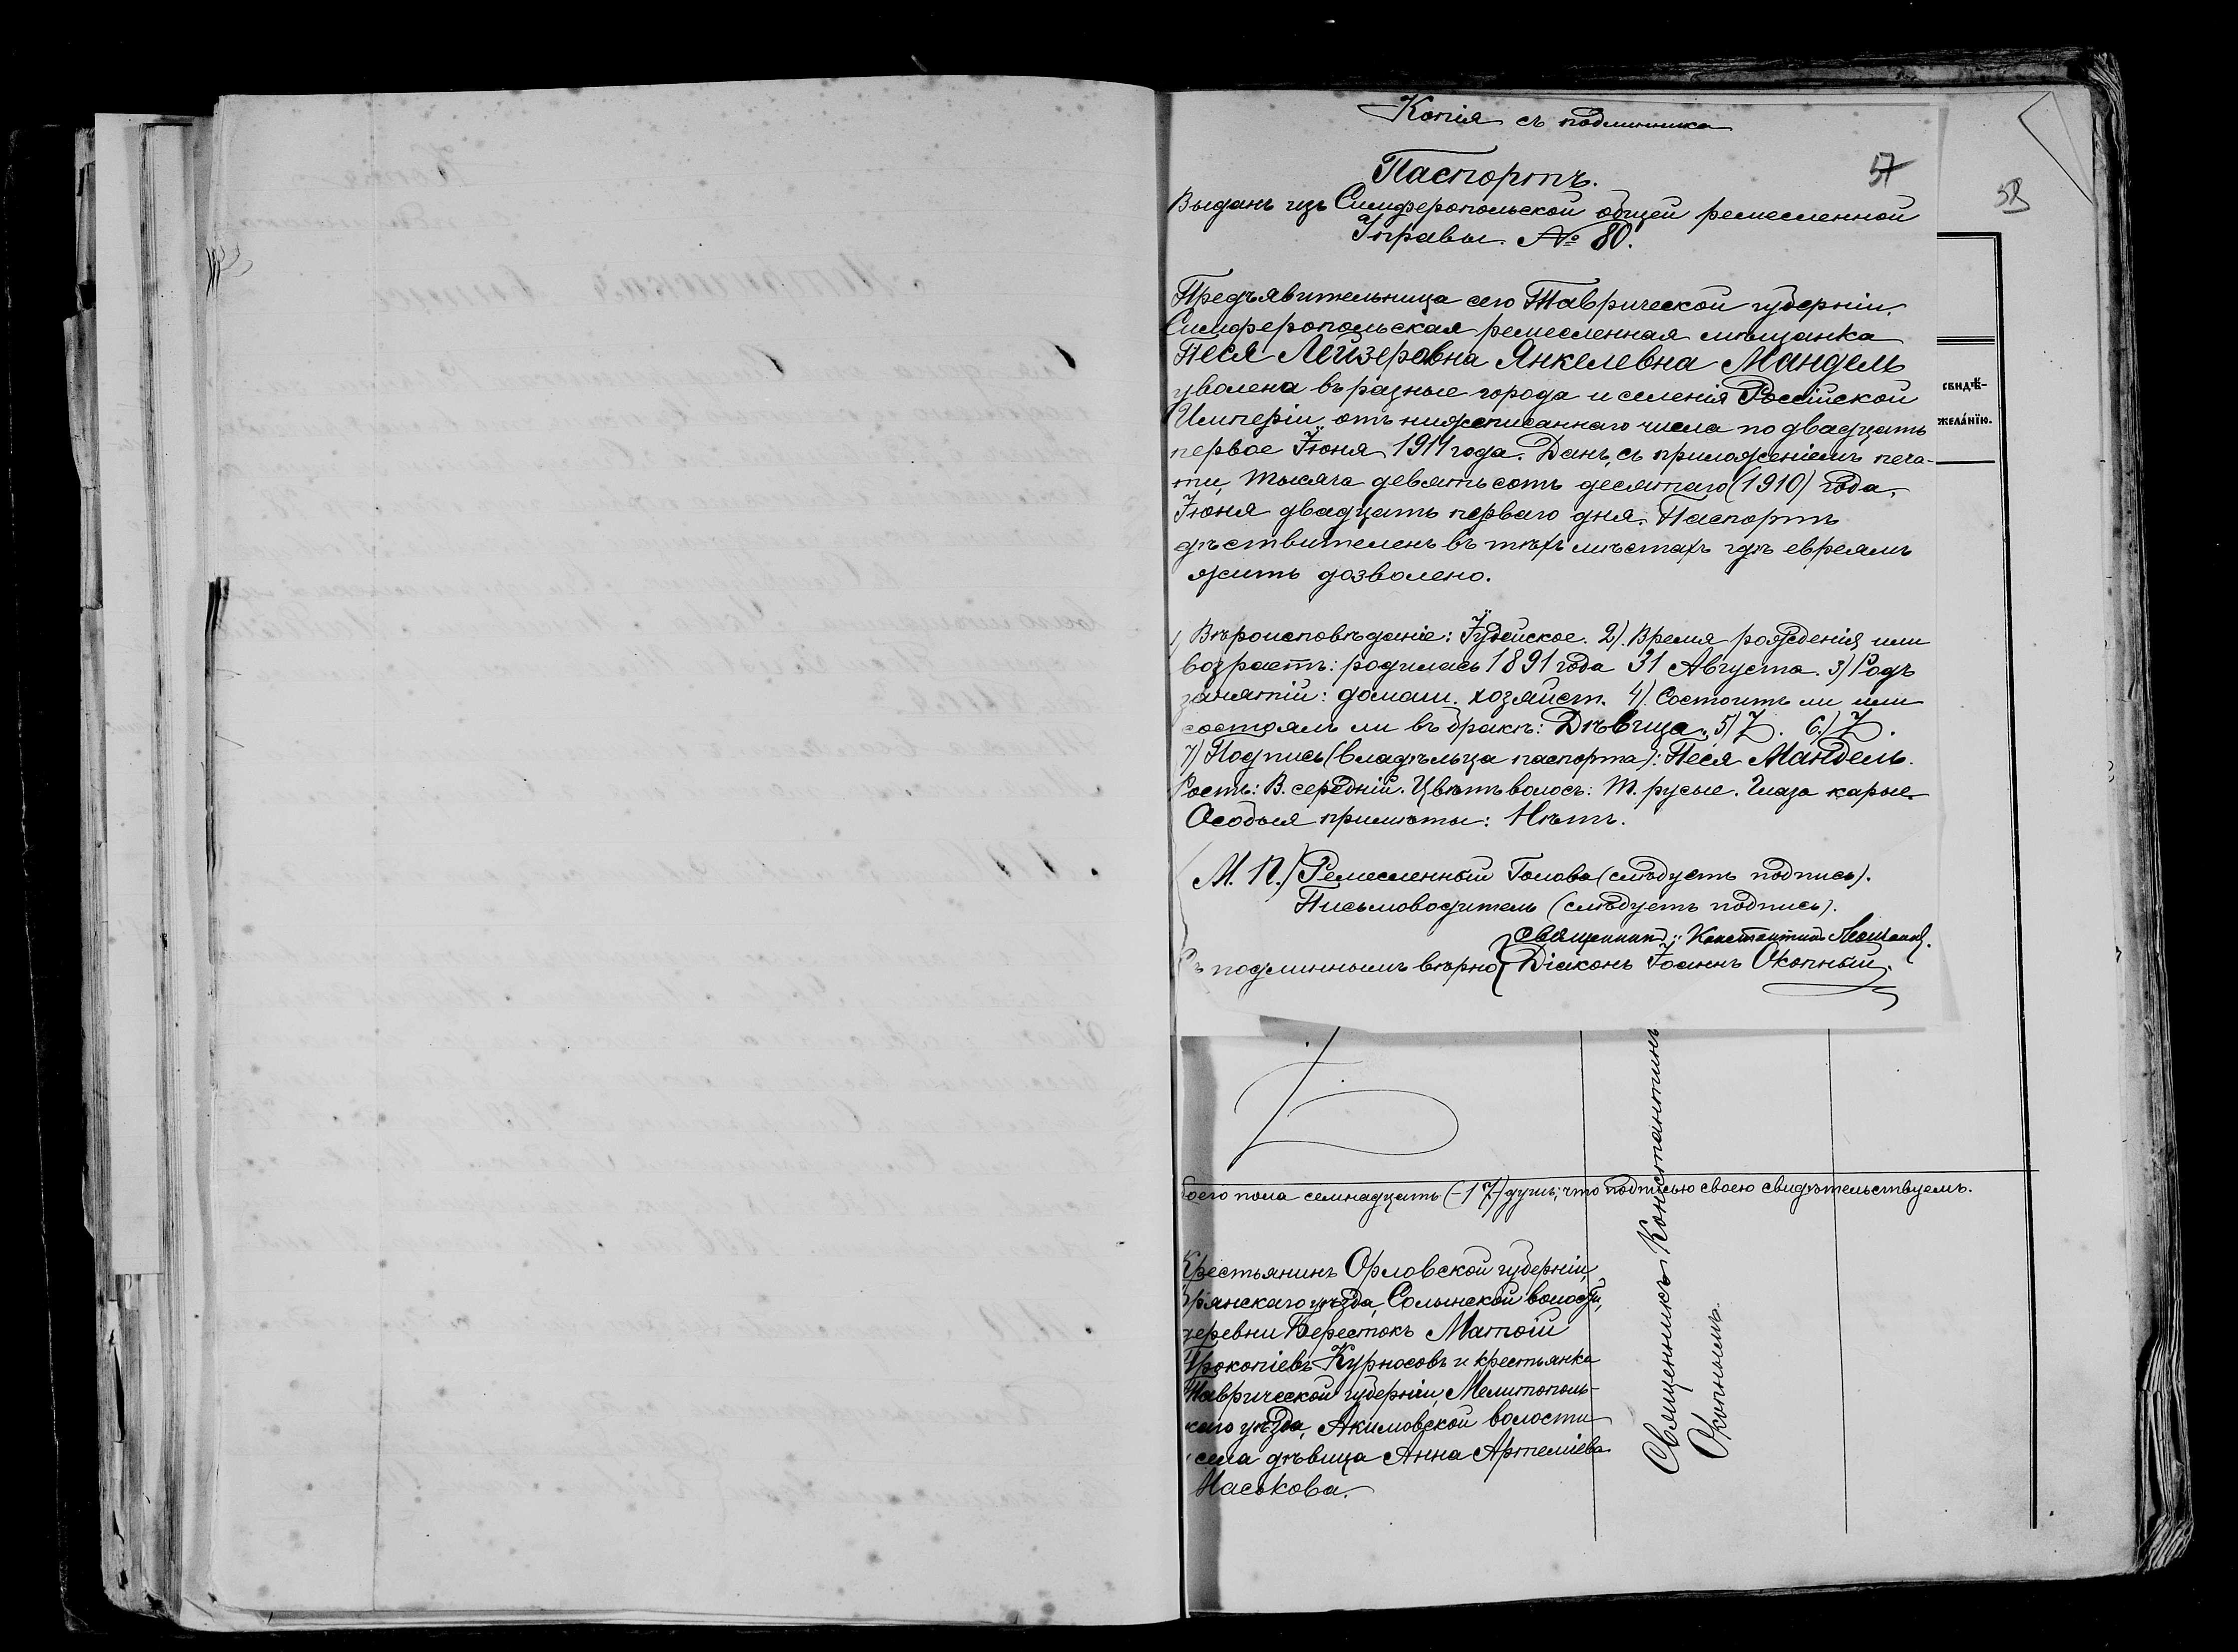 Копія съ подлинника
57
58
Паспортъ.
Выданъ изъ Симферопольской общей ремесленной
Управы. № 80.
Предъявительница сего Таврической губерніи,
Симферопольская ремесленная мѣщанка
Песя Лейзеровна Янкелевна Мандель
уволена въ разные города и селенія Россійской
Имперіи отъ нижеписаннаго числа по двадцать
первое Іюня 1911 года. Данъ, съ приложеніемъ печа-
ти, тысяча девятьсотъ десятаго (1910) года,
Іюня двадцать перваго дня. Паспортъ
дѣствителенъ въ тѣхъ мѣстахъ гдѣ евреямъ
жить дозволено.
1) Вѣроисповѣданіе: Іудейское. 2). Время рожденія или
возрастъ: родилась 1891 года 31 Августа. 3) Родъ
занятій: домаш. хозяйст. 4). Состоитъ ли или
состоялъ ли въ бракѣ: Дѣвица. 5) Z. 6) Z.
7) Подпись (владѣльца паспорта): Песя Мандель.
Ростъ: В. середній. Цвѣтъ волосъ: Т. русые. Глаза карые.
Особыя примѣты: Нѣтъ.
М. П.) Ремесленный Голова (слѣдуетъ подпись).
Письмоводитель (слѣдуетъ подпись).
Священникъ: Константинъ
Съ подлиннымъ вѣрно: Діаконъ Іоаннъ Окопный.
СВИДѢ-
ЖЕЛА́НІЮ.
боего пола семнадцать (-17-) душъ; что подписью своею свидѣтельствуемъ.
Крестьянинъ Орловской губерніи,
Брянскаго уѣзда, Солынской волости,
деревни Бересток Матѳій
Прокопіевъ Курносовъ и крестьянка
Таврической губерніи, Мелитополь-
скаго уѣзда, Акимовской волости
села дѣвица Анна Артеміева
Маськова.
Священникъ Константинъ
Окопнымъ.